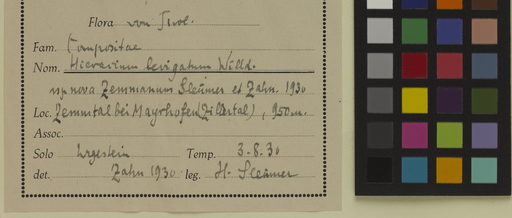 Flora von Tirol.
Fam. Compositae
Nom. Hieracium levigatum Willd.
ssp. nova Zemmanum Sleumer et Zahn. 1930
Loc. Zemmtal bei Mayrhofen (Zillertal), 950m.
Assoc.
Solo Urgestein Temp. 3-8-30
det. Zahn 1930 leg. H. Sleumer